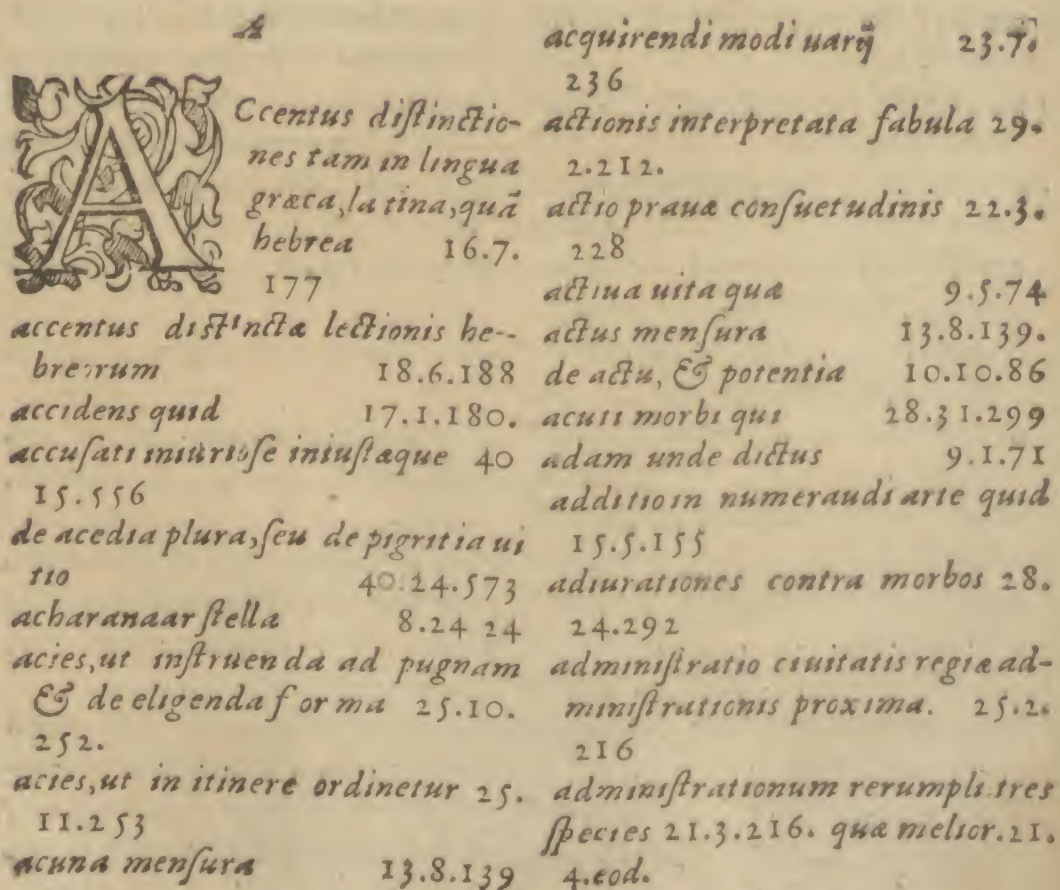 A
ACcentus distinctio-
nes tam in lingua
græca, la tina, quã
hebrea 16.7.
177
accentus dist'nctæ lectionis he--
breorum 18.6.188
accidens quid 17.1.180.
accusati iniuriose iniustæque 40
15.556
de acedia plura, seu de pigritia ui
tio 40.24.573
acharanaar stella 8.24 24
acies, ut instruen da ad pugnam
& de eligenda f or ma 25.10.
252.
acies, ut in itinere ordinetur 25.
11.253
acuna mensura 13.8.139
acquirendi modi uarij 23.7.
236
actionis interpretata fabula 29.
2.212.
actio prauæ consuetudinis 22.3.
228
actiua uita quæ 9.5.74
actus mensura 13.8.139.
de actu, & potentia 10.10.86
acuti morbi qui 28.31.299
adam unde dictus 9.1.71
additio in numeraudi arte quid
15.5.155
adiurationes contra morbos 28.
24.292
administratio ciuitatis regiæ ad-
ministrationis proxima. 25.2.
216
administrationum rerumpli tres
species 21.3.216. quæ melior. 21.
4.eod.